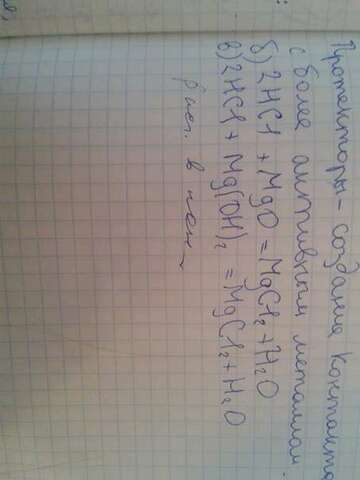 Протекторы - создание контакта
с более активным металлом.
б) 2HCl + MgO = MgCl₂ + H₂O
в) 2HCl + Mg(OH)₂ = MgCl₂ + H₂O
в